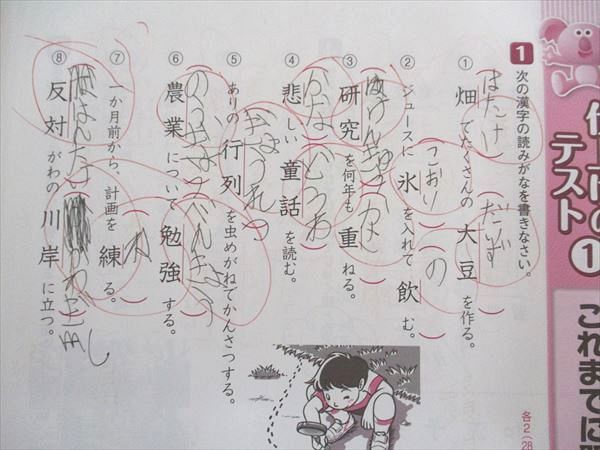 仕上げの
テスト①
これまでに
1 次の漢字の読みがなを書きなさい。
各2(28
① 畑でたくさんの大豆を作る。
はたけ
だいず
② ジュースに氷を入れて飲む。
こおり
の
③ 研究を何年も重ねる。
けんきゅう
かさ
④ 悲しい童話を読む。
かな
どうわ
⑤ ありの行列を虫めがねでかんさつする。
ぎょうれつ
⑥ 農業について勉強する。
のうぎょう
べんきょう
⑦ 一か月前から、計画を練る。
ね
⑧ 反対がわの川岸に立つ。
はんたい
かわぎし